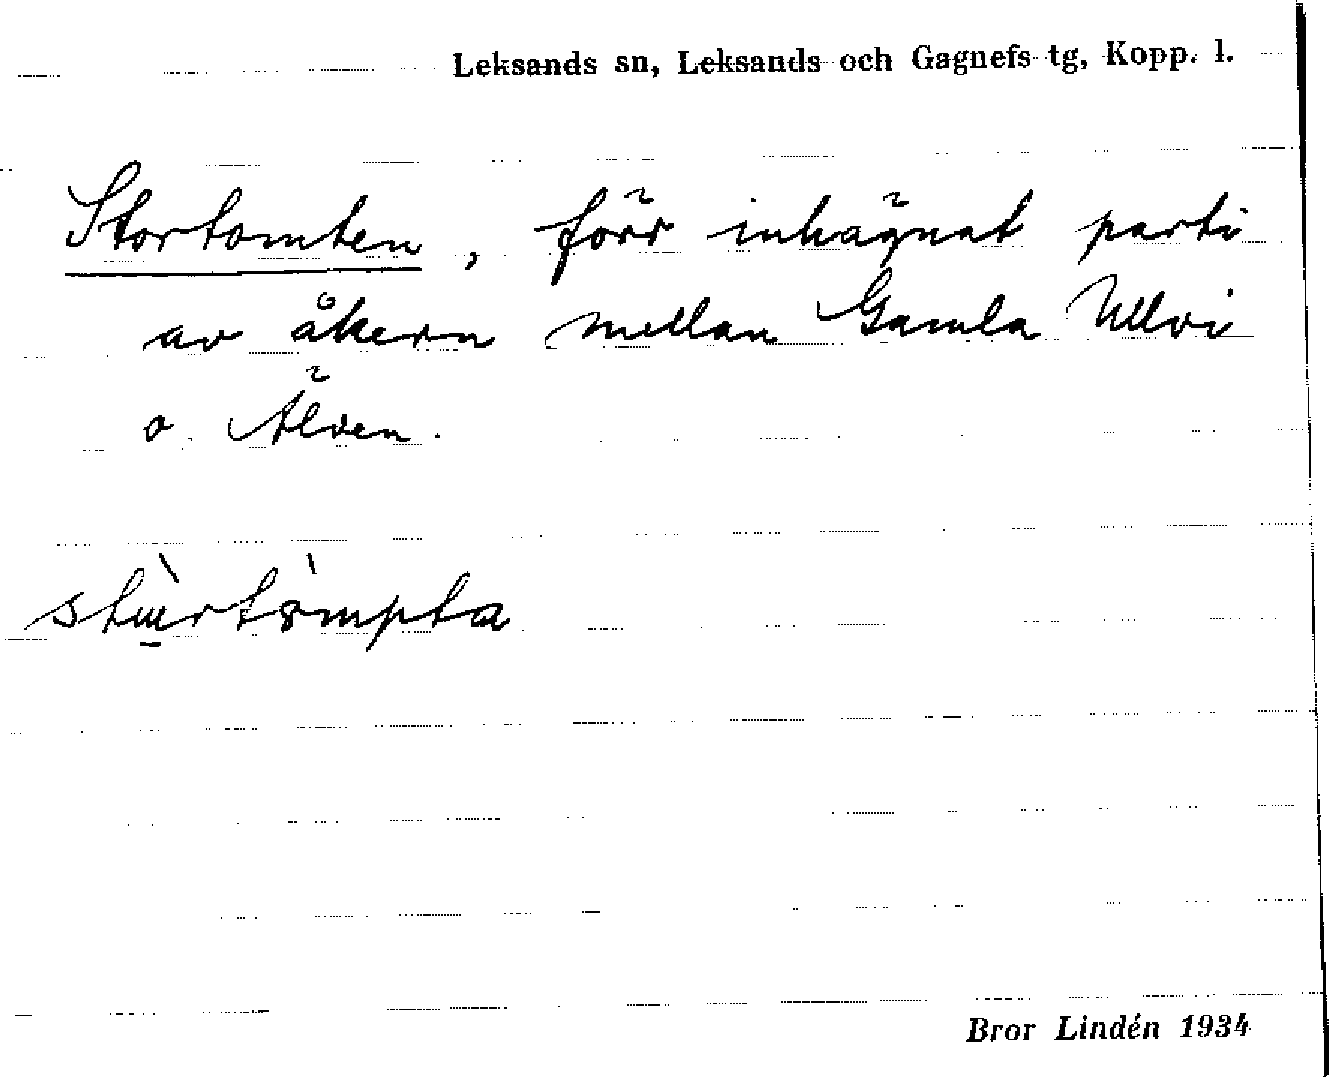 Leksands sn, Leksands och Gagnefs tg, Kopp. l.
Stortomten, förr inhägnat parti
av åkern mellan Gamla Ullvi
o. Älven.
stùrtòmpta
Bror Lindén 1934